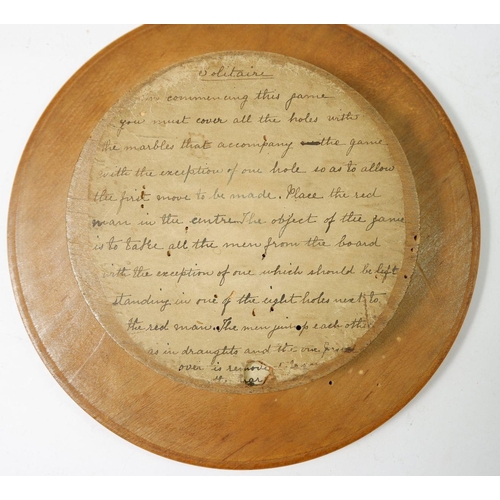 Solitaire
In commencing this game
you must cover all the holes with
the marbles that accompany the game
with the exception of one hole so as to allow
the first move to be made. Place the red
man in the centre. The object of the game
is to take all the men from the board
with the exception of one which should be left
standing in one of the eight holes next to
the red man. The men jump each other
as in draughts and the one
over is